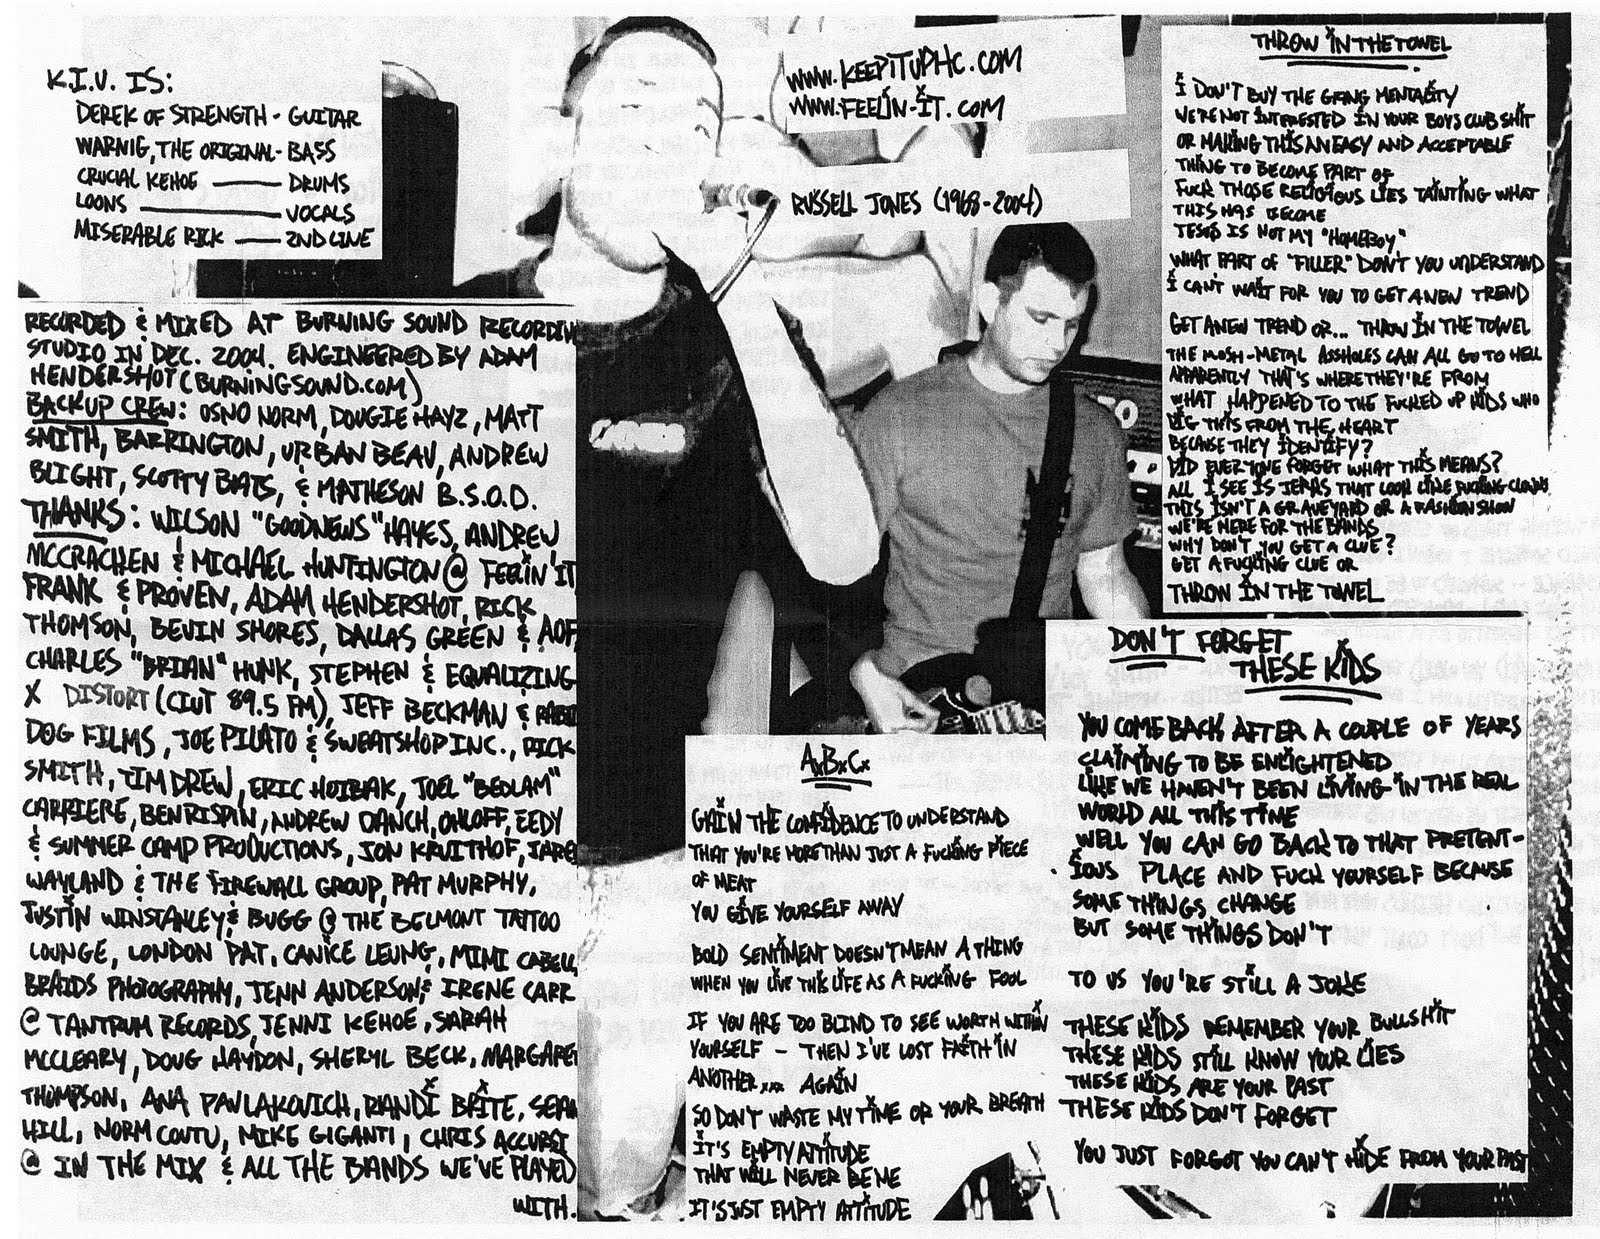 K.I.U. IS:
DEREK OF STRENGTH - GUITAR
WARNIG, THE ORIGINAL - BASS
CRUCIAL KEHOE — DRUMS
LOONS — VOCALS
MISERABLE RICK — 2ND LINE
RECORDED & MIXED AT BURNING SOUND RECORDIN
STUDIO IN DEC. 2004. ENGINEERED BY ADAM
HENDERSHOT (BURNINGSOUND.COM)
BACKUP CREW: OSNO NORM, DOUGIE HAYZ, MATT
SMITH, BARRINGTON, URBAN BEAV, ANDREW
BLIGHT, SCOTTY BATS, & MATHESON B.S.O.D.
THANKS: WILSON "GOODNEWS" HAYES, ANDREW
MCCRACHEN & MICHAEL HUNTINGTON @ FEELIN' IT,
FRANK & PROVEN, ADAM HENDERSHOT, RICK
THOMSON, BEVIN SHORES, DALLAS GREEN & AOF,
CHARLES "BRIAN" HUNK, STEPHEN & EQUALIZING
X DISTORT (CIUT 89.5 FM), JEFF BECKMAN &
DOG FILMS, JOE PILATO & SWEATSHOP INC., RICK
SMITH, TIM DREW, ERIC HOIBAK, JOEL "BEDLAM"
CARRIERE, BEN RISPIN, ANDREW DANCH, OHLOFF, EEDY
& SUMMER CAMP PRODUCTIONS, JON KRUITHOF, JARE
WAYLAND & THE FIREWALL GROUP, PAT MURPHY,
JUSTIN WINSTANLEY & BUGG @ THE BELMONT TATTOO
LOUNGE, LONDON PAT, CANICE LEUNG, MIMI CABELL,
BRAIDS PHOTOGRAPHY, JENN ANDERSON & IRENE CARR
@ TANTRUM RECORDS, JENNI KEHOE, SARAH
MCCLEARY, DOUG HAYDON, SHERYL BECK, MARGARET
THOMPSON, ANA PAVLAKOVICH, RANDI BRITE, SEAN
HILL, NORM COUTU, MIKE GIGANTI, CHRIS ACCURSI
@ IN THE MIX & ALL THE BANDS WE'VE PLAYED
WITH.
WWW.KEEPITUPHC.COM
WWW.FEELIN-IT.COM
RUSSELL JONES (1968-2004)
AxBxCx
GAIN THE CONFIDENCE TO UNDERSTAND
THAT YOU'RE MORE THAN JUST A FUCKING PIECE
OF MEAT
YOU GIVE YOURSELF AWAY
BOLD SENTIMENT DOESN'T MEAN A THING
WHEN YOU LIVE THIS LIFE AS A FUCKING FOOL
IF YOU ARE TOO BLIND TO SEE WORTH WITHIN
YOURSELF - THEN I'VE LOST FAITH IN
ANOTHER xxx AGAIN
SO DON'T WASTE MY TIME OR YOUR BREATH
IT'S EMPTY ATTITUDE
THAT WILL NEVER BE ME
IT'S JUST EMPTY ATTITUDE
THROW IN THE TOWEL
I DON'T BUY THE GANG MENTALITY
WE'RE NOT INTERESTED IN YOUR BOYS CLUB SHIT
OR MAKING THIS AN EASY AND ACCEPTABLE
THING TO BECOME PART OF
FUCK THOSE RELIGIOUS LIES TAINTING WHAT
THIS HAS BECOME
JESUS IS NOT MY "HOMEBOY"
WHAT PART OF "FILLER" DON'T YOU UNDERSTAND
I CAN'T WAIT FOR YOU TO GET A NEW TREND
GET A NEW TREND OR... THROW IN THE TOWEL
THE MOSH-METAL ASSHOLES CAN ALL GO TO HELL
APPARENTLY THAT'S WHERE THEY'RE FROM
WHAT HAPPENED TO THE FUCKED UP KIDS WHO
DIG THIS FROM THE HEART
BECAUSE THEY IDENTIFY?
DID EVERYONE FORGET WHAT THIS MEANS?
ALL I SEE IS JERKS THAT LOOK LIKE FUCKING CLOWNS
THIS ISN'T A GRAVEYARD OR A FASHION SHOW
WE'RE HERE FOR THE BANDS
WHY DON'T YOU GET A CLUE?
GET A FUCKING CLUE OR
THROW IN THE TOWEL
DON'T FORGET
THESE KIDS
YOU COME BACK AFTER A COUPLE OF YEARS
CLAIMING TO BE ENLIGHTENED
LIKE WE HAVEN'T BEEN LIVING IN THE REAL
WORLD ALL THIS TIME
WELL YOU CAN GO BACK TO THAT PRETENT-
IOUS PLACE AND FUCK YOURSELF BECAUSE
SOME THINGS CHANGE
BUT SOME THINGS DON'T
TO US YOU'RE STILL A JOKE
THESE KIDS REMEMBER YOUR BULLSHIT
THESE KIDS STILL KNOW YOUR LIES
THESE KIDS ARE YOUR PAST
THESE KIDS DON'T FORGET
YOU JUST FORGOT YOU CAN'T HIDE FROM YOUR PAST